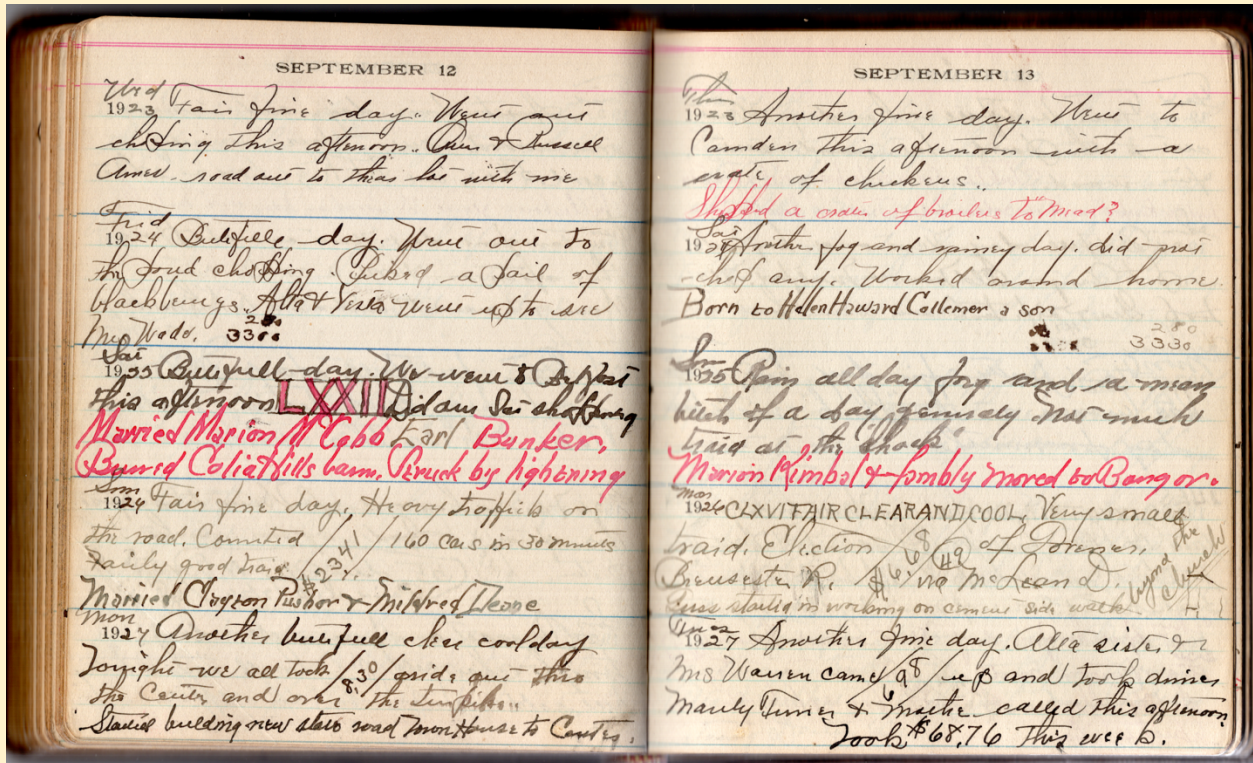 SEPTEMBER 12
Wed
1923 Fair fine day. Went out
choping this afternoon. & Russell
Ames road out to lot with me
Frid
1924 Butifulle day. Went out to
the pond chopping. Picked a pail of
blackberrys. Alta & went up to see
Mrs Wade. 280
3300
Sat
1925 Butifull day. We went to Belfast
this afternoon LXXIII
Married Marion McCobb Earl Bunker.
Burned barn. Struck by lightning
Sun
1926 Fair fine day. Heavy traffick on
the road. Counted 160 cars in 30 minuts
Fairly good traid $23.41
Married Clayton & Mildred Deane
Mon
1927 Another butifull clear cool day
Tonight we all took 8.30 / a ride out thro
the Center and over the
Started building new state road Town House to Center.
SEPTEMBER 13
Thu
1923 Another fine day. Went to
Camden this afternoon with a
crate of chickens..
Shipped a crate of broilers to "Mead?
Sat
1924 Another fog and day. did not
chop any. Worked around home
Born to Helen Haward Collemer a son
280
3330
Sun
1925 Rain all day fog and a mean
bitch of a day Not much
traid at "the Shack"
Marion Kimbal & fambly moved to Bangor.
Mon
1926 CLXVI FAIR CLEAR AND COOL. Very small
traid. Election of
Brewster R. McLean D.
working on cement side walk beyond the church
Tues
1927 Another fine day. Alta sister &
Mrs Warren came up and took dinner
Turner & called this afternoon
Took $68.76 This week.